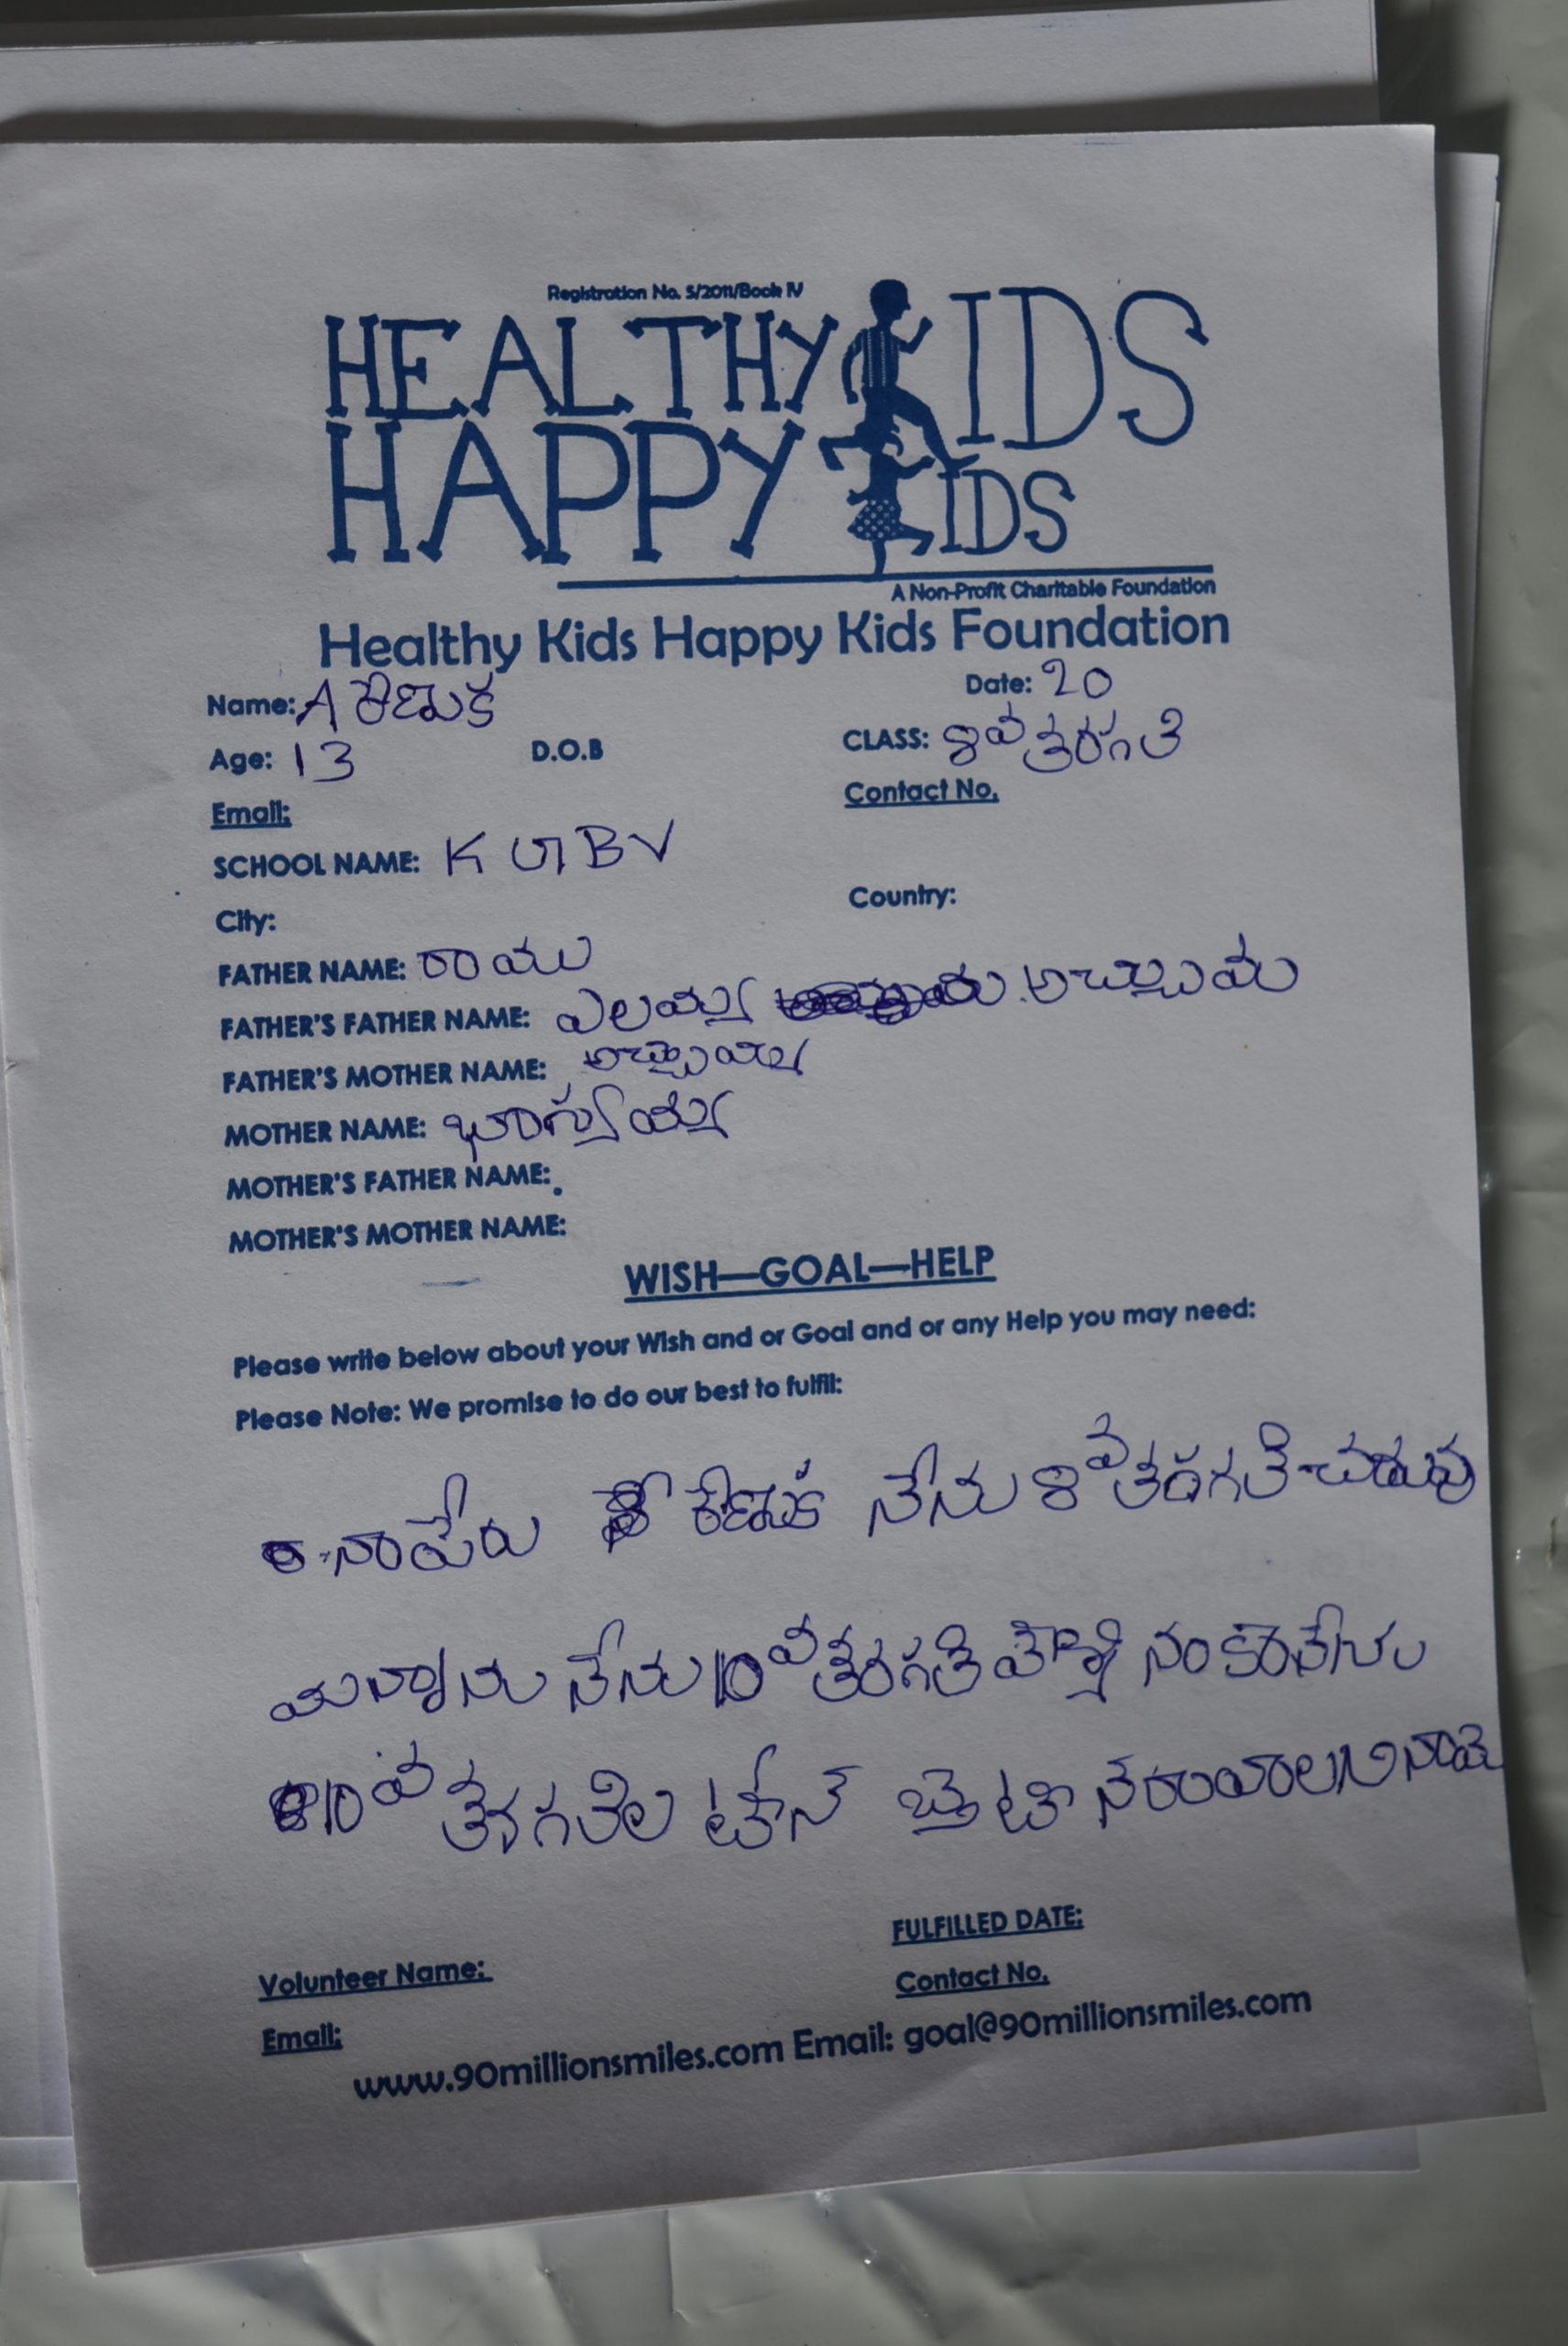 Registration No. 5/2011/Book IV
HEALTHY KIDS
HAPPY KIDS
A Non-Profit Charitable Foundation
Healthy Kids Happy Kids Foundation
Name: A రేణుక Date: 20
Age: 13 D.O.B CLASS: 8వ తరగతి
Email: Contact No.
SCHOOL NAME: KGBV
City: Country:
FATHER NAME: రాము
FATHER'S FATHER NAME: ఎలమ్మ
FATHER'S MOTHER NAME:
MOTHER NAME: భాగ్యమ్మ
MOTHER'S FATHER NAME:
MOTHER'S MOTHER NAME:
WISH—GOAL—HELP
Please write below about your Wish and or Goal and or any Help you may need:
Please Note: We promise to do our best to fulfil:
నా పేరు రేణుక నేను 8వ తరగతి చదువు
నేను 10వ తరగతి
10వ
FULFILLED DATE:
Volunteer Name: Contact No.
Email:
www.90millionsmiles.com Email: goal@90millionsmiles.com